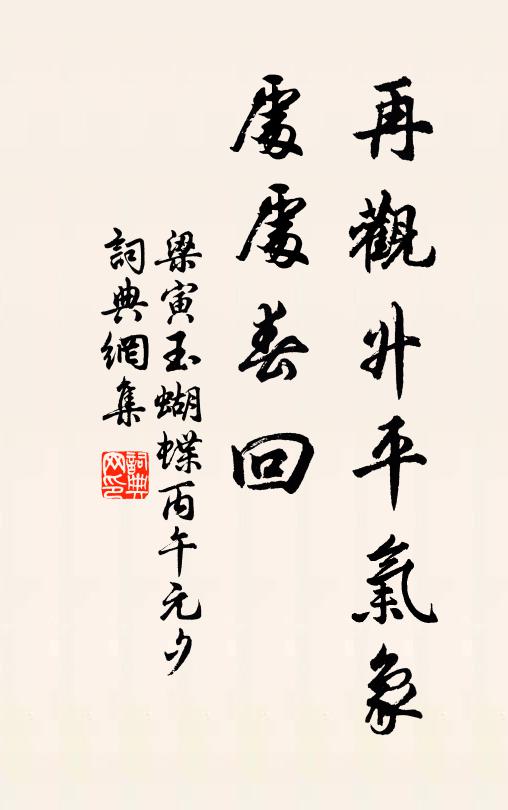 再觀升平氣象
處處春回
梁寅玉蝴蝶丙午元夕
詞典網集
詞典網印